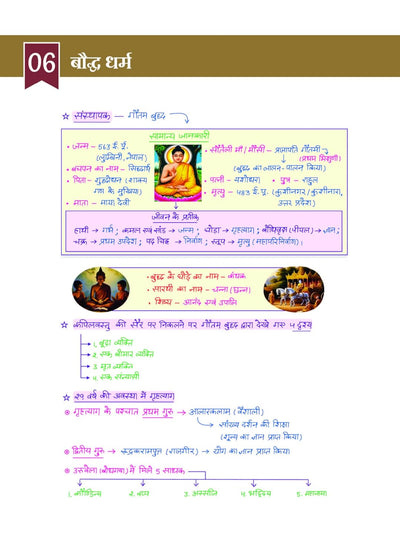 06 बौद्ध धर्म
☆ संस्थापक – गौतम बुद्ध
सामान्य जानकारी
• जन्म – 563 ई.पू.
(लुम्बिनी, नेपाल)
• बचपन का नाम – सिद्धार्थ
• पिता – शुद्धोधन (शाक्य
गण के मुखिया)
• माता – माया देवी
• सौतेली माँ/मौसी – प्रजापति गौतमी
(प्रथम भिक्षुणी)
(बुद्ध का लालन-पालन किया)
• पत्नी – यशोधरा • पुत्र – राहुल
• मृत्यु – 483 ई.पू. (कुशीनगर/कुशीनारा,
उत्तर प्रदेश)
जीवन के प्रतीक
हाथी → गर्भ; कमल एवं सांड → जन्म; घोड़ा → गृहत्याग; बोधिवृक्ष (पीपल) → ज्ञान;
चक्र → प्रथम उपदेश; पद चिह्न → निर्वाण; स्तूप → मृत्यु (महापरिनिर्वाण)।
• बुद्ध के घोड़े का नाम – कंथक
• सारथी का नाम – चन्ना (छन्न)
• शिष्य – आनंद एवं उपालि
☆ कपिलवस्तु की सैर पर निकलने पर गौतम बुद्ध द्वारा देखे गए 4 दृश्य
1. बूढ़ा व्यक्ति
2. एक बीमार व्यक्ति
3. मृत व्यक्ति
4. एक संन्यासी
☆ 29 वर्ष की अवस्था में गृहत्याग
गृहत्याग के पश्चात प्रथम गुरु → आलारकलाम (वैशाली)
→ सांख्य दर्शन की शिक्षा
(शून्य का ज्ञान प्राप्त किया)
द्वितीय गुरु → रुद्रकरामपुत्त (राजगीर) → योग का ज्ञान प्राप्त किया।
उरुवेला (बोधगया) में मिले 5 साधक
1. कौण्डिन्य 2. वप्प 3. अस्सजि 4. भद्दिय 5. महानामा